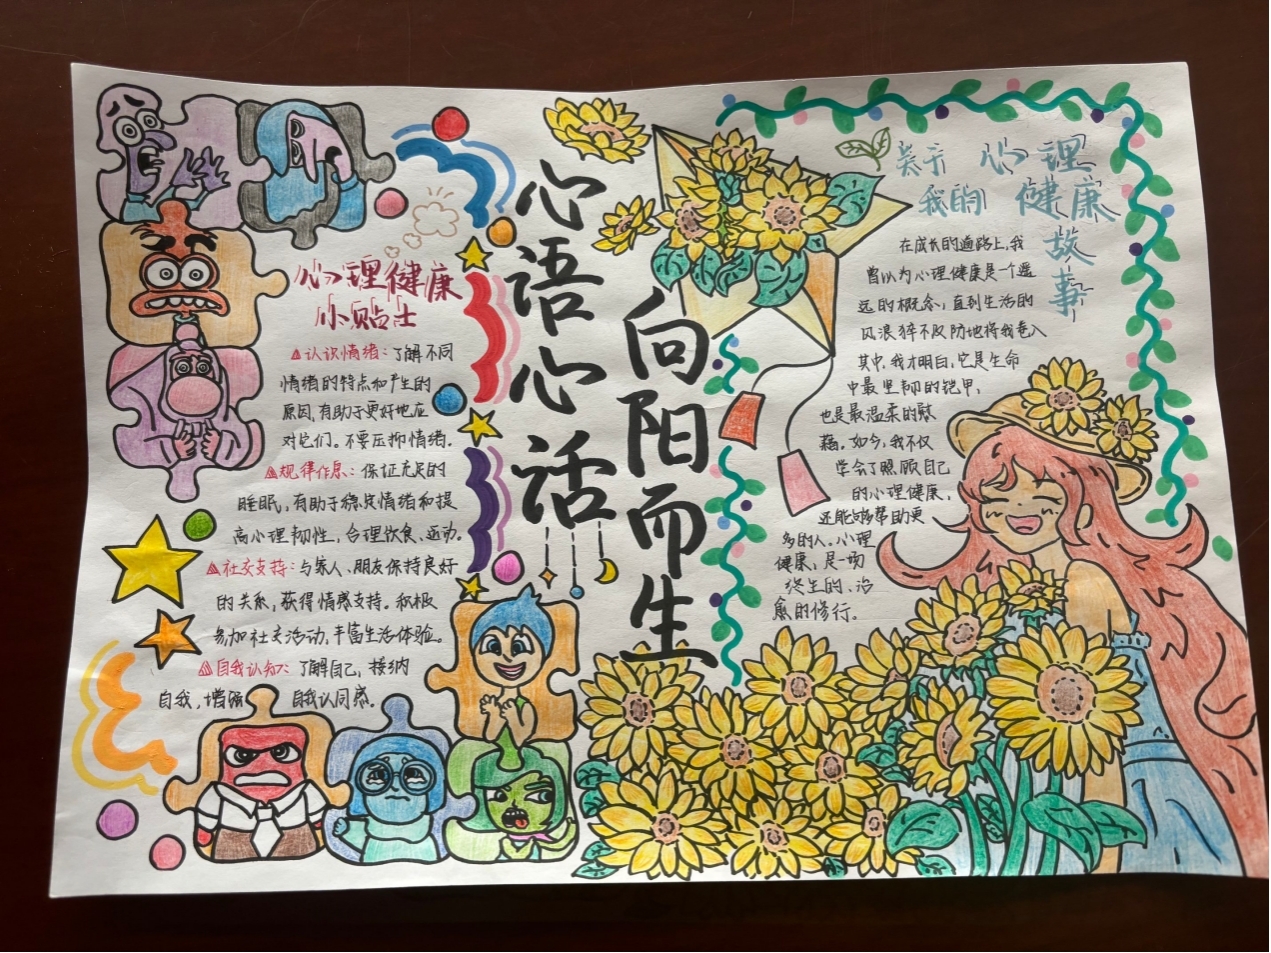 心语心话
向阳而生
心理健康
小贴士
认识情绪：了解不同
情绪的特点和产生的
原因，有助于更好地应
对它们。不要压抑情绪。
规律作息：保证充足的
睡眠，有助于稳定情绪和提
高心理韧性，合理饮食、运动。
社交支持：与家人、朋友保持良好
的关系，获得情感支持。积极
参加社交活动，丰富生活体验。
自我认知：了解自己，接纳
自我，增强自我认同感。
关于
我的
心理
健康
故事
在成长的道路上，我
曾以为心理健康是一个遥
远的概念，直到生活的
风浪猝不及防地将我卷入
其中，我才明白，它是生命
中最坚韧的铠甲，
也是最温柔的慰
藉。如今，我不仅
学会了照顾自己
的心理健康，
还能够帮助更
多的人。心理
健康，是一场
终生的、治
愈的修行。